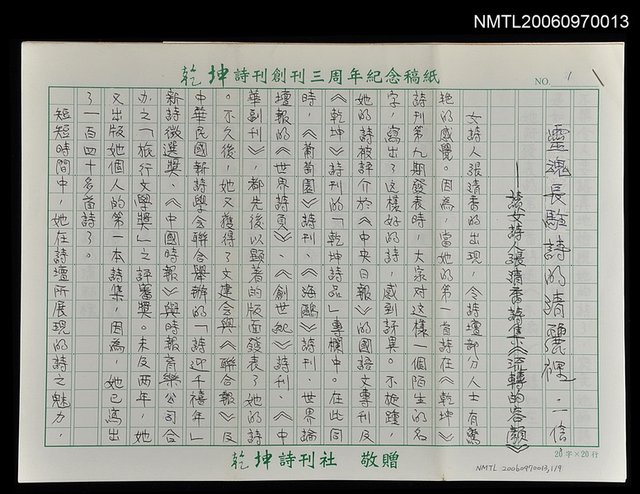 NMTL20060970013
乾坤詩刊創刊三周年紀念稿紙
NO. 1
靈魂長駐詩的清麗裡 一信
——讀女詩人張清香詩集《流轉的容顏》
女詩人張清香的出現，令詩壇部分人士有驚
艷的感覺。因為，當她的第一首詩在《乾坤》
詩刊第九期發表時，大家对這樣一個陌生的名
字，寫出了這樣好的詩，感到訝異。不旋踵，
她的詩被評介於《中央日報》的國語文專刊及
《乾坤》詩刊的「乾坤詩品」專欄中。在此同
時，《葡萄園》詩刊、《海鷗》詩刊、世界論
壇報的《世界詩頁》、《創世紀》詩刊、《中
華副刊》，都先後以顯著的版面發表了她的詩
。不久後，她又獲得了文建会與《聯合報》及
中華民國新詩學会聯合舉辦的「詩迎千禧年」
新詩徵選獎、《中國時報》與時報育樂公司合
办之「旅行文學獎」之評審獎。未及兩年，她
又出版她個人的第一本詩集，因為，她已寫出
了一百四十多首詩了。
短短時間中，她在詩壇所展現的詩之魅力，
20字×20行
乾坤詩刊社 敬贈
NMTL 20060970013,1/9